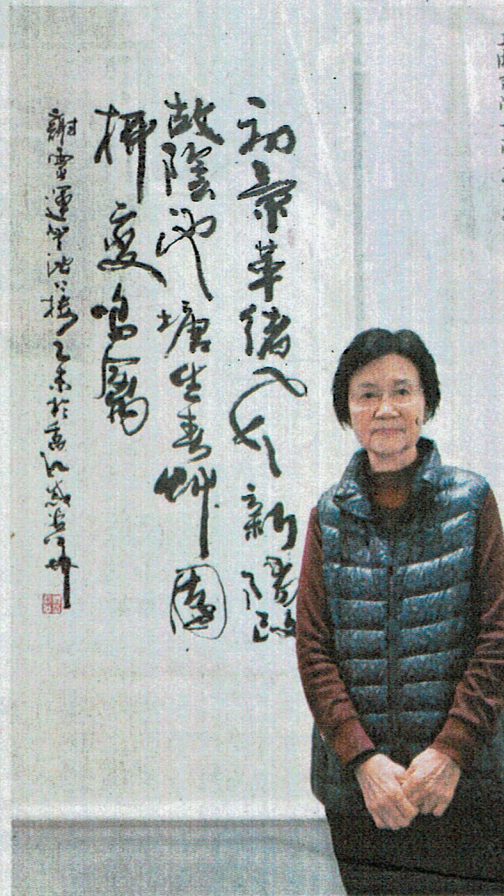 初景革緒風新陽改
故陰池塘生春艸園
柳變鳴禽
謝靈運登池上樓乙未於香江